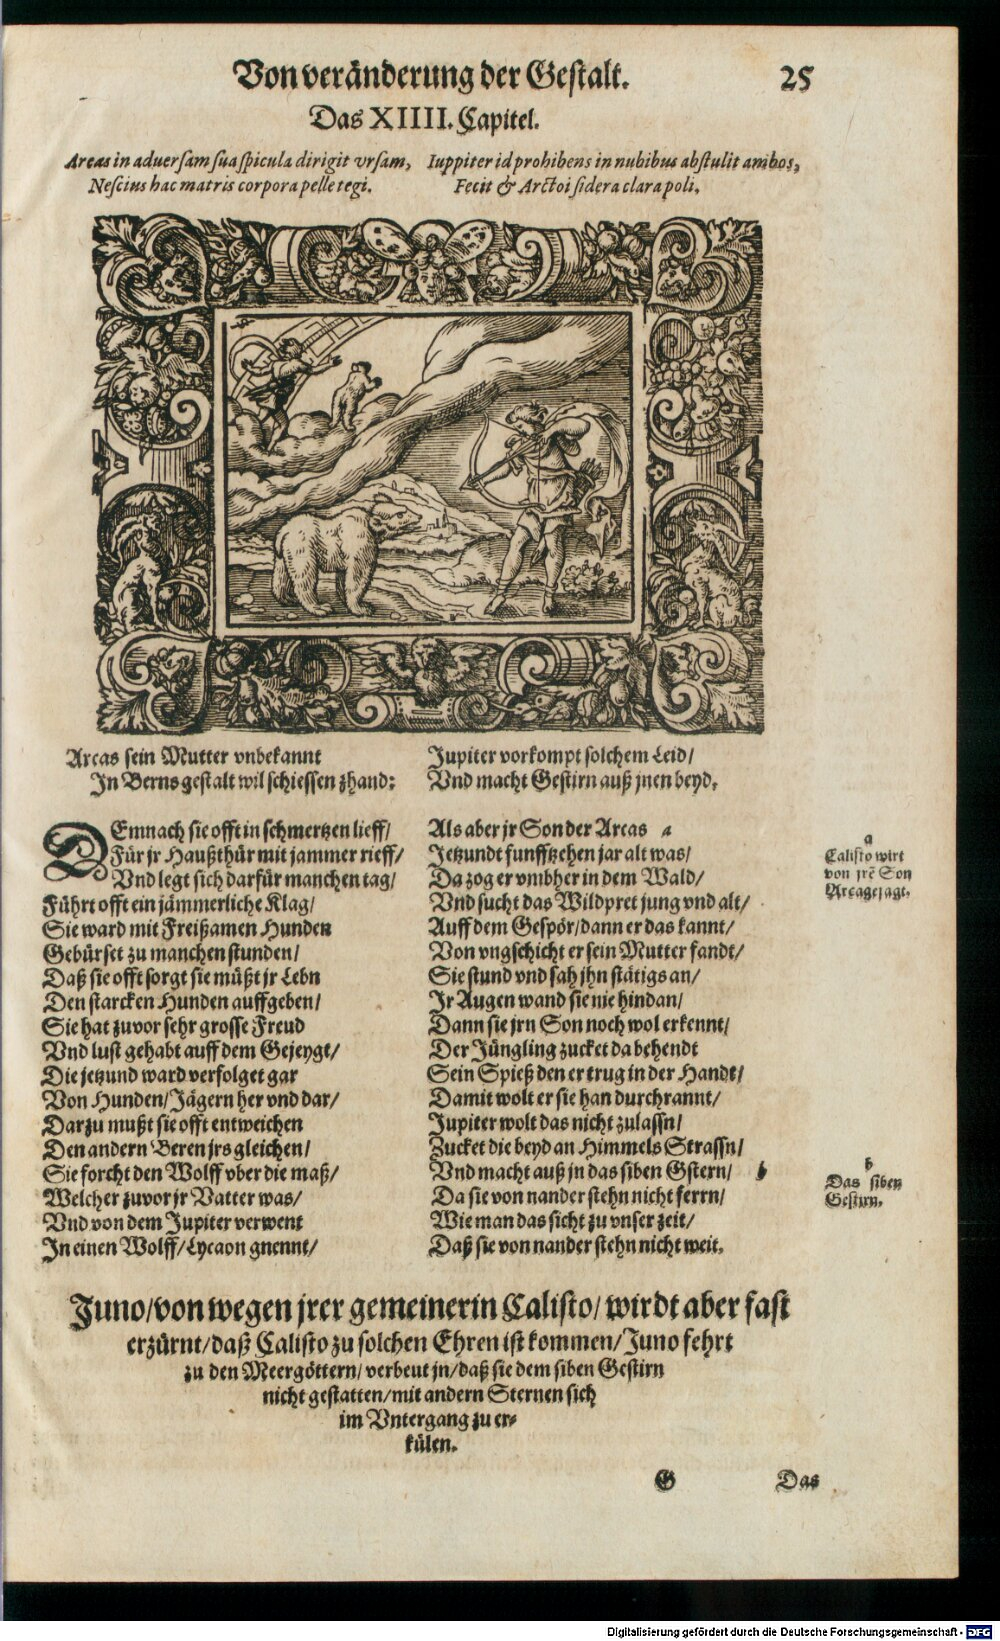 Von veränderung der Gestalt. 25
Das XIIII. Capitel.
Arcas in aduersam sua spicula dirigit vrsam,
Nescius hac matris corpora pelle tegi.
Iuppiter id prohibens in nubibus abstulit ambos,
Fecit & Arctoi sidera clara poli.
Arcas sein Mutter vnbekannt
In Berns gestalt wil schiessen zhand:
Jupiter vorkompt solchem Leid/
Vnd macht Gestirn auß jnen beyd.
DEmnach sie offt in schmertzen lieff/
Für jr Haußthür mit jammer rieff/
Vnd legt sich darfür manchen tag/
Führt offt ein jämmerliche Klag/
Sie ward mit Freißamen Hunden
Gebürset zu manchen stunden/
Daß sie offt sorgt sie müßt jr Lebn
Den starcken Hunden auffgeben/
Sie hat zuvor sehr grosse Freud
Vnd lust gehabt auff dem Gejeygt/
Die jetzund ward verfolget gar
Von Hunden/Jägern her vnd dar/
Darzu mußt sie offt entweichen
Den andern Beren jrs gleichen/
Sie forcht den Wolff vber die maß/
Welcher zuvor jr Vatter was/
Vnd von dem Jupiter verwent
In einen Wolff/Lycaon gnennt/
Als aber jr Son der Arcas a
Jetzundt funfftzehen jar alt was/
Da zog er vmbher in dem Wald/
Vnd sucht das Wildpret jung vnd alt/
Auff dem Gespör/dann er das kannt/
Von vngschicht er sein Mutter fandt/
Sie stund vnd sah jhn stätigs an/
Jr Augen wand sie nie hindan/
Dann sie jrn Son noch wol erkennt/
Der Jüngling zucket da behendt
Sein Spieß den er trug in der Handt/
Damit wolt er sie han durchrannt/
Jupiter wolt das nicht zulassn/
Zucket die beyd an Himmels Strassn/
Vnd macht auß jn das siben Gstern/ b
Da sie von nander stehn nicht ferrn/
Wie man das sicht zu vnser zeit/
Daß sie von nander stehn nicht weit.
a
Calisto wirt
von jrē Son
Arca gejagt.
b
Das siben
Gestirn.
Juno/von wegen jrer gemeinerin Calisto/wirdt aber fast
erzürnt/daß Calisto zu solchen Ehren ist kommen/Juno fehrt
zu den Meergöttern/verbeut jn/daß sie dem siben Gestirn
nicht gestatten/mit andern Sternen sich
im Vntergang zu er-
külen.
G Das
Digitalisierung gefördert durch die Deutsche Forschungsgemeinschaft - DFG